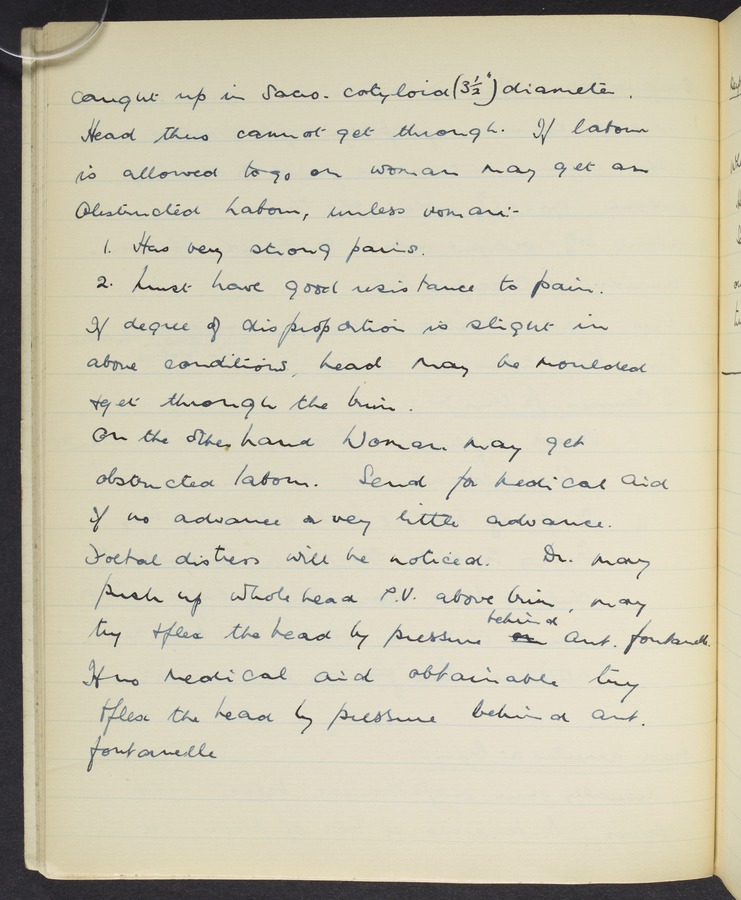 caught up in Sacro-cotyloid (3½") diameter.
Head thus cannot get through. If labour
is allowed to go on woman may get an
Obstructed Labour, unless woman:-
1. Has very strong pains.
2. Must have good resistance to pain.
If degree of disproportion is slight in
above conditions, head may be moulded
+ get through the brim.
On the other hand Woman may get
obstructed labour. Send for Medical Aid
if no advance or very little advance.
Foetal distress will be noticed. Dr. may
push up whole head P.V. above brim, may
behind
try + flex the head by pressure on ant. fontanelle.
If no medical aid obtainable try
+ flex the head by pressure behind ant.
fontanelle